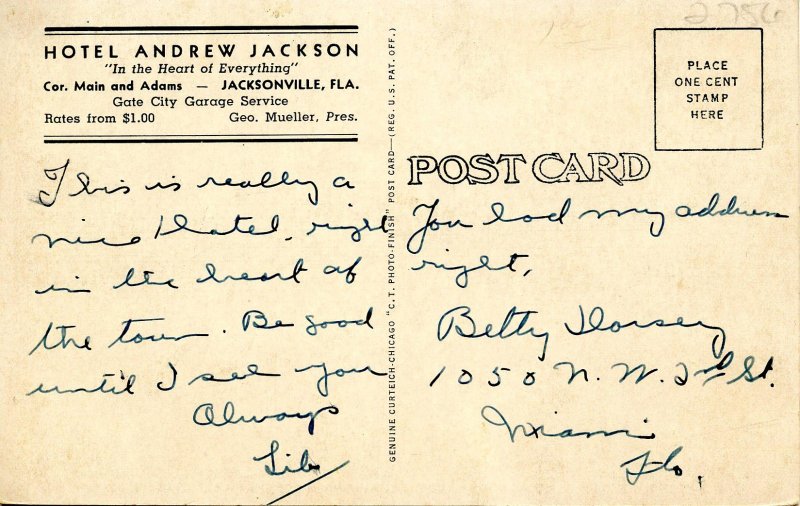 2756
HOTEL ANDREW JACKSON
"In the Heart of Everything"
Cor. Main and Adams — JACKSONVILLE, FLA.
Gate City Garage Service
Rates from $1.00 Geo. Mueller, Pres.
This is really a
nice Hotel, right
in the heart of
the town. Be good
until I see you
Always
Lib
GENUINE CURTEICH-CHICAGO "C.T. PHOTO-FINISH" POST CARD—(REG. U.S. PAT. OFF.)
PLACE
ONE CENT
STAMP
HERE
POST CARD
You had my address
right,
Betty Dorsey
1050 N.W. 2nd St.
Miami
Fla.